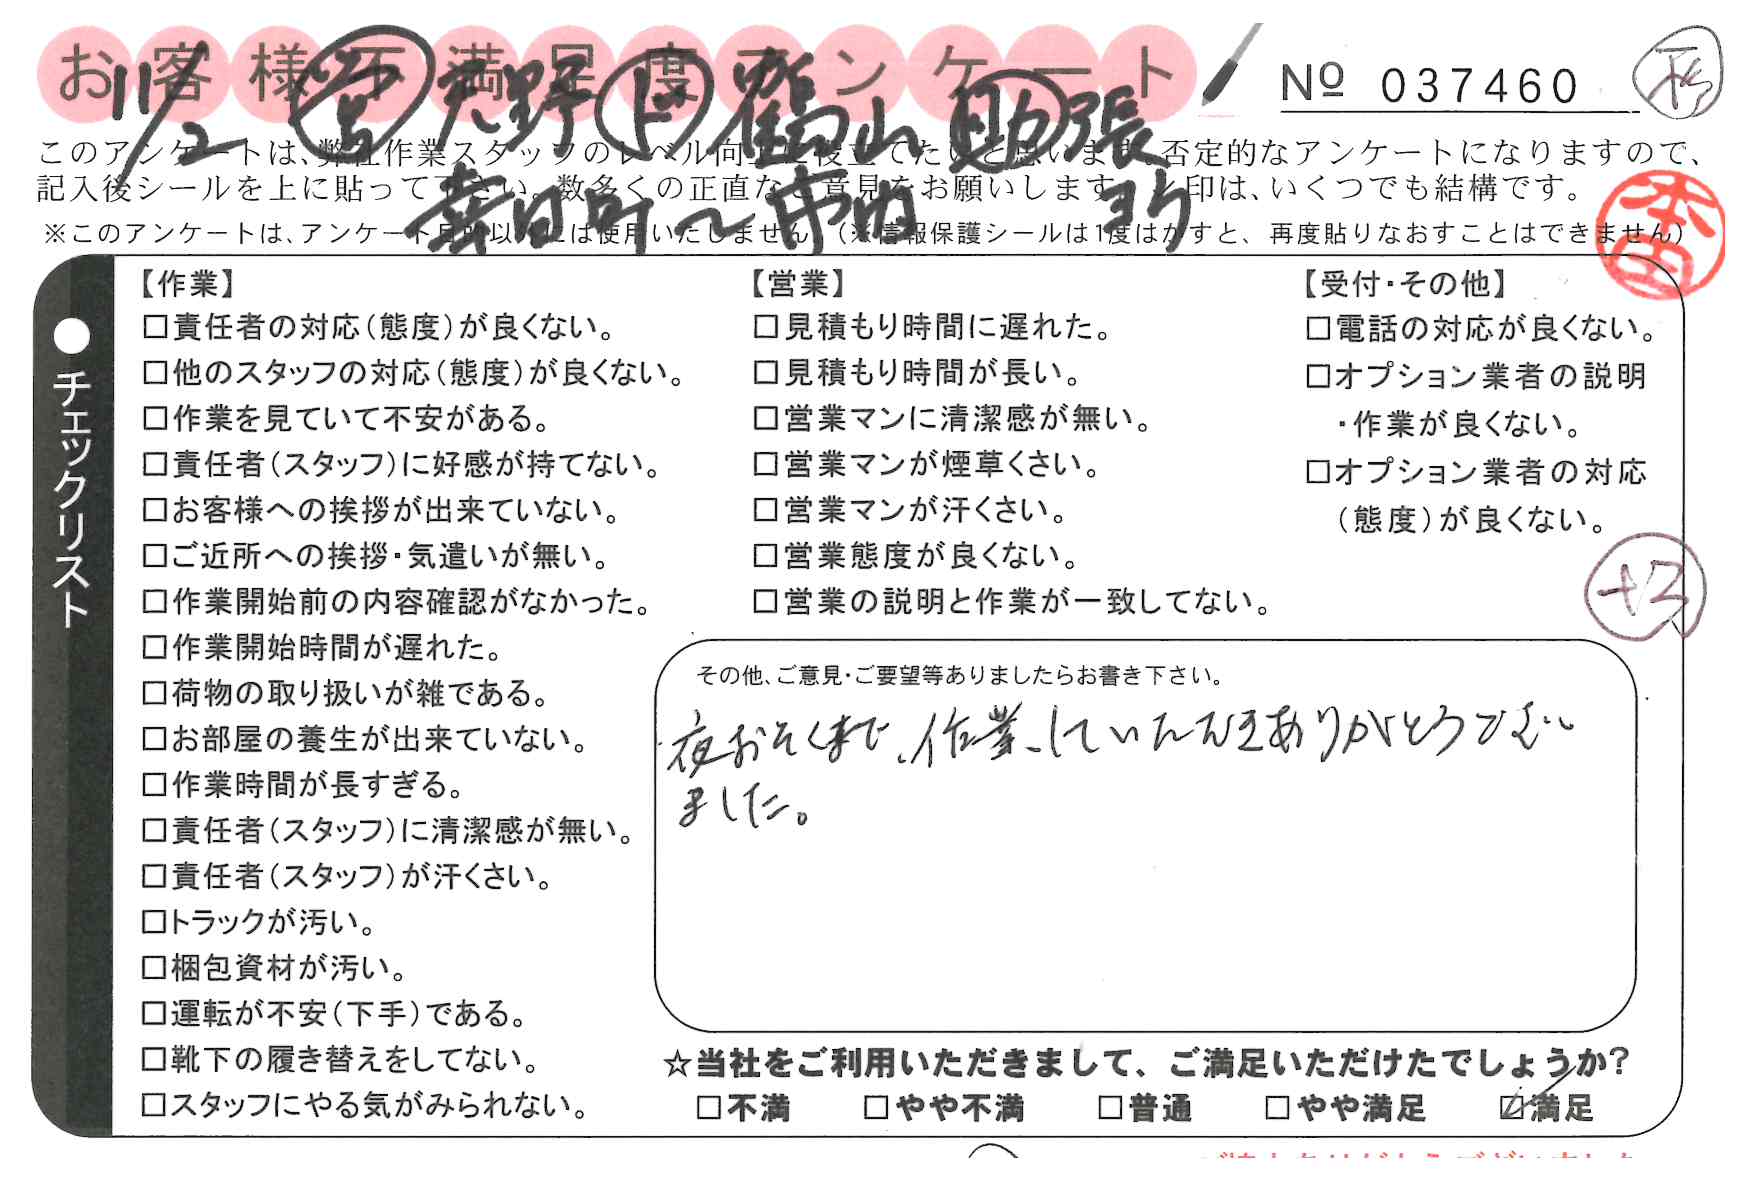 お客様不満足度アンケート
№ 037460
11/2 営 天野 ド 鶴山 助 張
幸日町〜市内 ヨリ
このアンケートは、弊社作業スタッフのレベル向上に役立てたいと思います。否定的なアンケートになりますので、
記入後シールを上に貼って下さい。数多くの正直なご意見をお願いします。レ印は、いくつでも結構です。
※このアンケートは、アンケート目的以外には使用いたしません。(※情報保護シールは1度はがすと、再度貼りなおすことはできません)
本田
●チェックリスト
【作業】
□責任者の対応(態度)が良くない。
□他のスタッフの対応(態度)が良くない。
□作業を見ていて不安がある。
□責任者(スタッフ)に好感が持てない。
□お客様への挨拶が出来ていない。
□ご近所への挨拶・気遣いが無い。
□作業開始前の内容確認がなかった。
□作業開始時間が遅れた。
□荷物の取り扱いが雑である。
□お部屋の養生が出来ていない。
□作業時間が長すぎる。
□責任者(スタッフ)に清潔感が無い。
□責任者(スタッフ)が汗くさい。
□トラックが汚い。
□梱包資材が汚い。
□運転が不安(下手)である。
□靴下の履き替えをしてない。
□スタッフにやる気がみられない。
【営業】
□見積もり時間に遅れた。
□見積もり時間が長い。
□営業マンに清潔感が無い。
□営業マンが煙草くさい。
□営業マンが汗くさい。
□営業態度が良くない。
□営業の説明と作業が一致してない。
【受付・その他】
□電話の対応が良くない。
□オプション業者の説明
・作業が良くない。
□オプション業者の対応
(態度)が良くない。
+3
その他、ご意見・ご要望等ありましたらお書き下さい。
夜おそくまで、作業していただきありがとうござい
ました。
☆当社をご利用いただきまして、ご満足いただけたでしょうか?
□不満 □やや不満 □普通 □やや満足 ☑満足